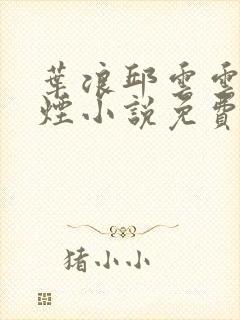 葉浪邱雲雪
煙小說免費
猪小小